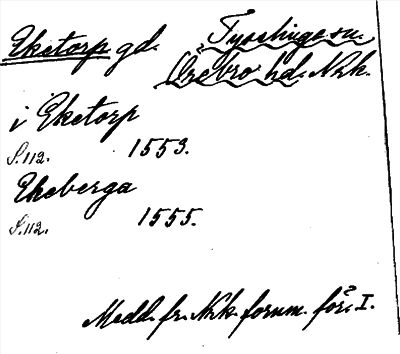 Eketorp gd. Tysslinge sn.
Örebro hd. Nrk.
i Eketorp
S. 112. 1553.
Ekeberga
S. 112. 1555.
Medd. fr. Nrk. fornm. för. I.